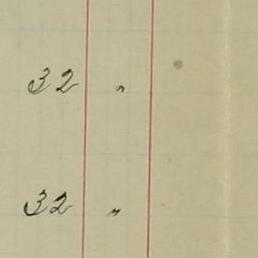 32 "
32 "